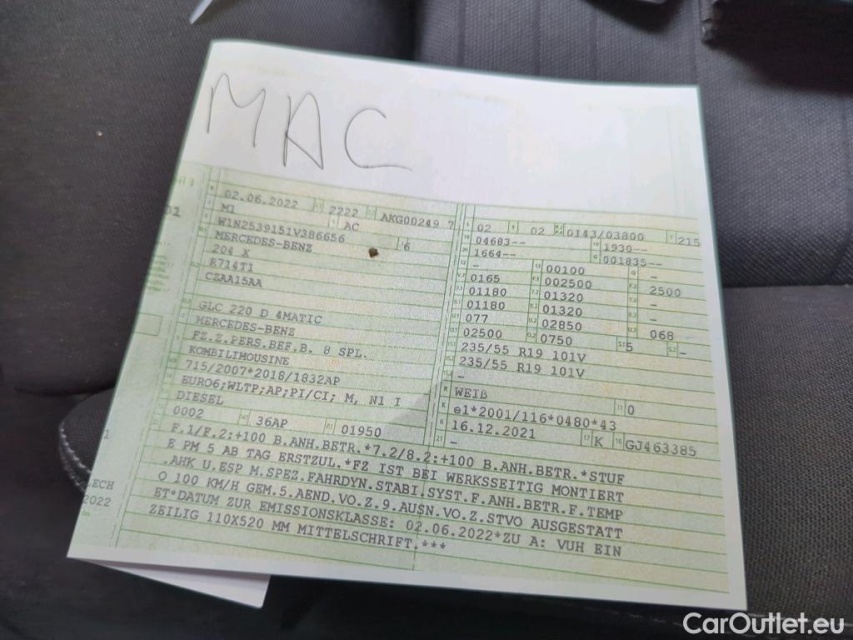 MAC
02.06.2022 2222 AKG00249 7
M1 AC
W1N2539151V386656 6
MERCEDES-BENZ
204 X
R714T1
CZAA15AA
GLC 220 D 4MATIC
MERCEDES-BENZ
FZ.Z.PERS.BEF.B. 8 SPL.
KOMBILIMOUSINE
715/2007*2018/1832AP
EURO6;WLTP;AP;PI/CI; M, N1 I
DIESEL
0002 36AP 01950
02 02 0143/03800 215
04683-- 1930--
1664-- 001835--
- 00100 -
0165 002500 2500
01180 01320
01180 01320
077 02850 068
02500 0750 5 -
235/55 R19 101V
235/55 R19 101V
-
WEIß 0
e1*2001/116*0480*43
16.12.2021 K GJ463385
-
F.1/F.2:+100 B.ANH.BETR.*7.2/8.2:+100 B.ANH.BETR.*STUF
E PM 5 AB TAG ERSTZUL.*FZ IST BEI WERKSSEITIG MONTIERT
.AHK U.ESP M.SPEZ.FAHRDYN.STABI.SYST.F.ANH.BETR.F.TEMP
O 100 KM/H GEM.5.AEND.VO.Z.9.AUSN.VO.Z.STVO AUSGESTATT
ET*DATUM ZUR EMISSIONSKLASSE: 02.06.2022*ZU A: VUH EIN
ZEILIG 110X520 MM MITTELSCHRIFT.***
ECH
2022
CarOutlet.eu